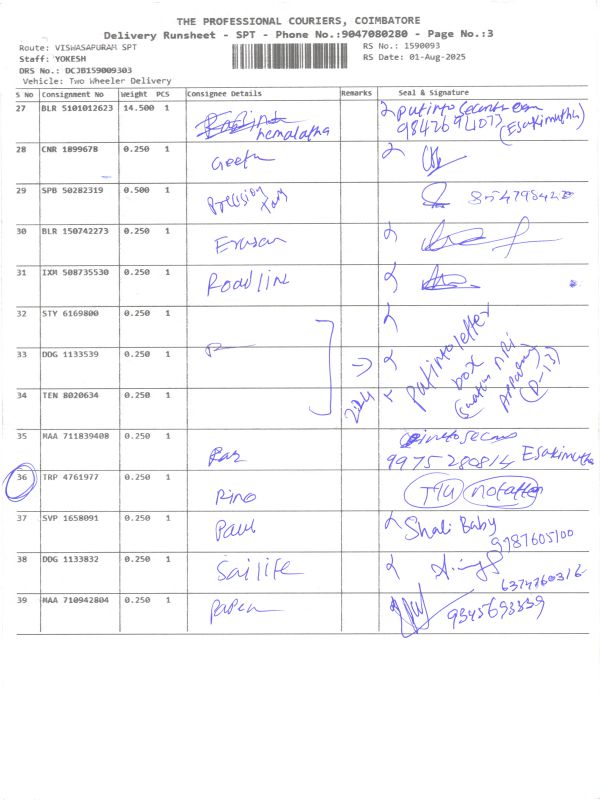 THE PROFESSIONAL COURIERS, COIMBATORE
Delivery Runsheet - SPT - Phone No.:9047080280 - Page No.:3
Route: VISWASAPURAM SPT RS No.: 1590093
Staff: YOKESH RS Date: 01-Aug-2025
DRS No.: DCJB159009303
Vehicle: Two Wheeler Delivery
S No Consignment No Weight PCS Consignee Details Remarks Seal & Signature
27 BLR 5101012623 14.500 1 hemalatha put into
9842694073 (Esakimuthu)
28 CNR 1899678 0.250 1 Geetha
29 SPB 50282319 0.500 1 Precision
30 BLR 150742273 0.250 1
31 IXM 508735530 0.250 1 Roadline
32 STY 6169800 0.250 1
33 DDG 1133539 0.250 1
34 TEN 8020634 0.250 1
put into letter
box
35 MAA 711839408 0.250 1
9975280814 Esakimuthu
36 TRP 4761977 0.250 1 Rino
37 SVP 1658091 0.250 1 Paul Shali Baby
9787605100
38 DDG 1133832 0.250 1 Sailife
6374760316
39 MAA 710942804 0.250 1 9345693839